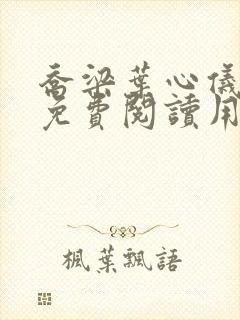 喬梁葉心儀
免費閱讀用
楓葉飄語